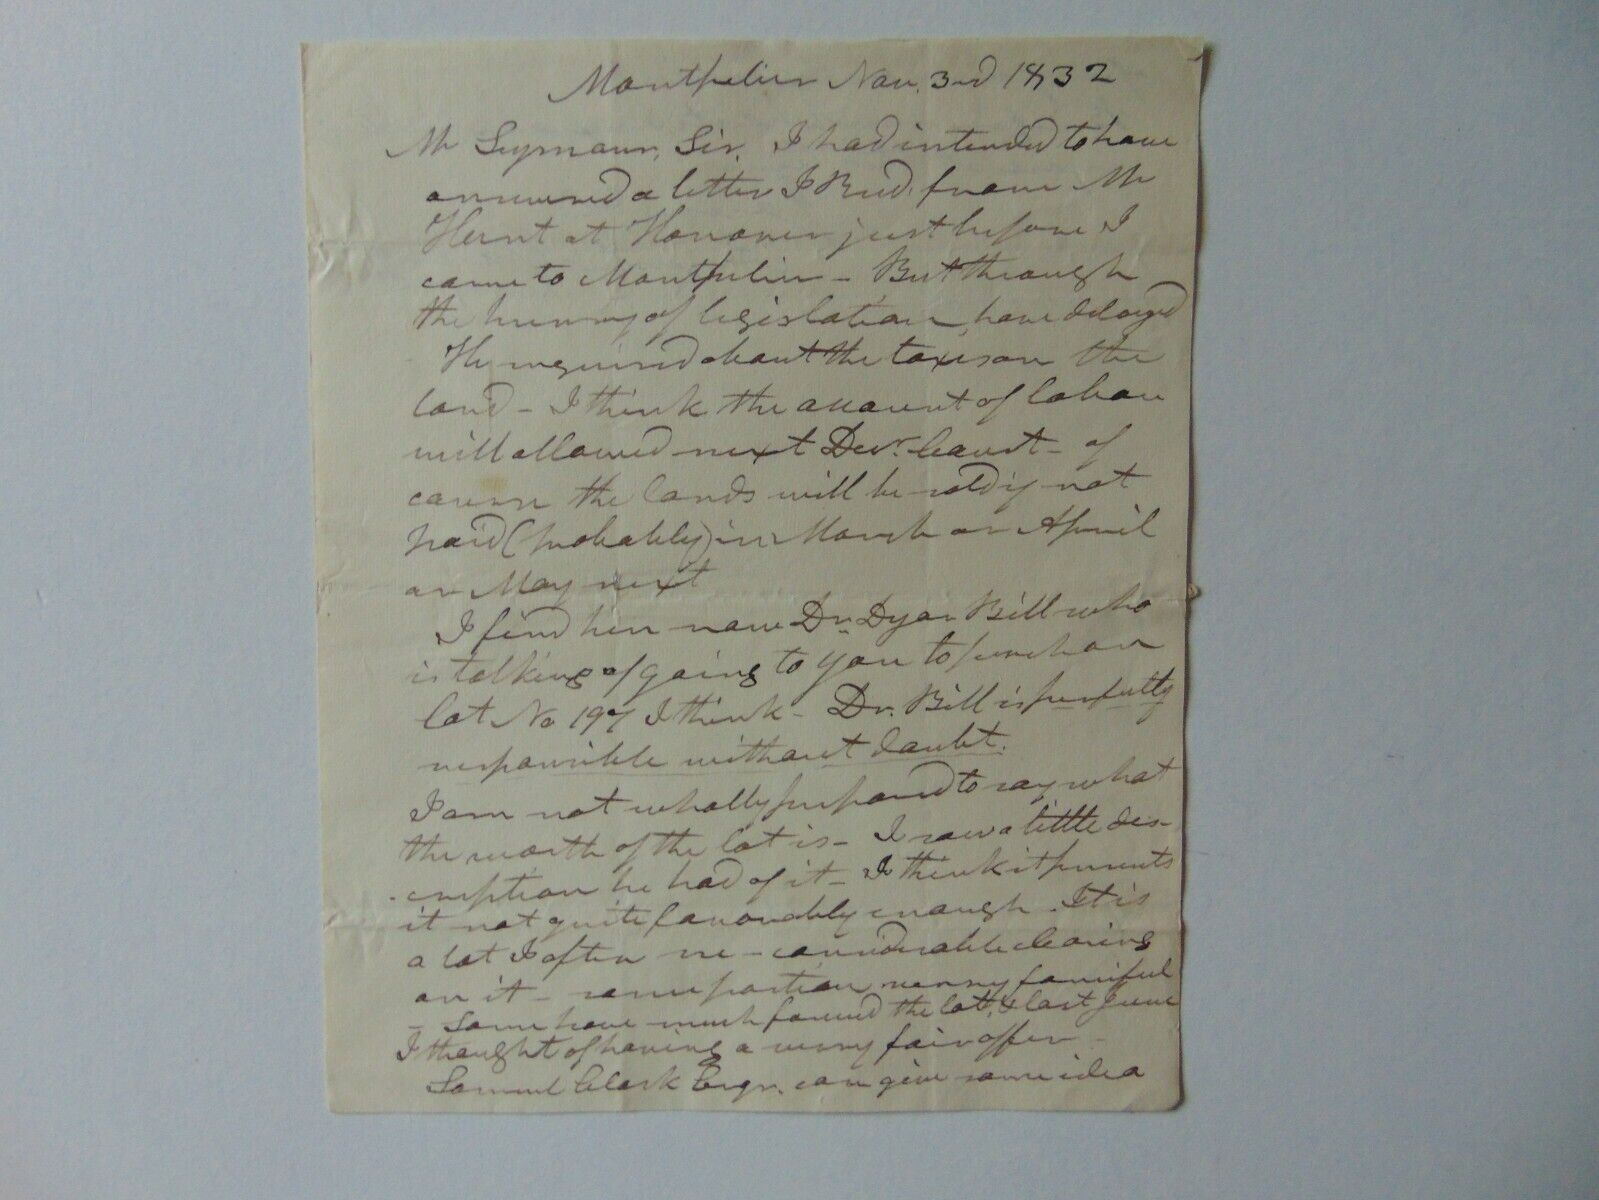 Montpelier Nov. 3rd 1832
Mr Seymour, Sir, I had intended to have
answered a letter I Recd. from Mr
Hunt at Hanover just before I
came to Montpelier - But through
the hurry of legislation, have delayed
He inquired about the taxes on the
land - I think the account of labour
will allowed next Decr. Court - of
course the lands will be sold if not
paid (probably) in March or April
or May next
I find here now Dr. Dyar Bill who
is talking of going to you to purchase
lot No 197 I think - Dr. Bill is perfectly
responsible without doubt.
I am not wholly prepared to say what
the worth of the lot is - I saw a little des-
cription he had of it - I think it presents
it not quite favourably enough. It is
a lot I often see - considerable clearing
on it - some portion very
- Some have much favored the lot, & last June
I thought of having a very fair offer -
Samuel Clark Esqr. can give some idea